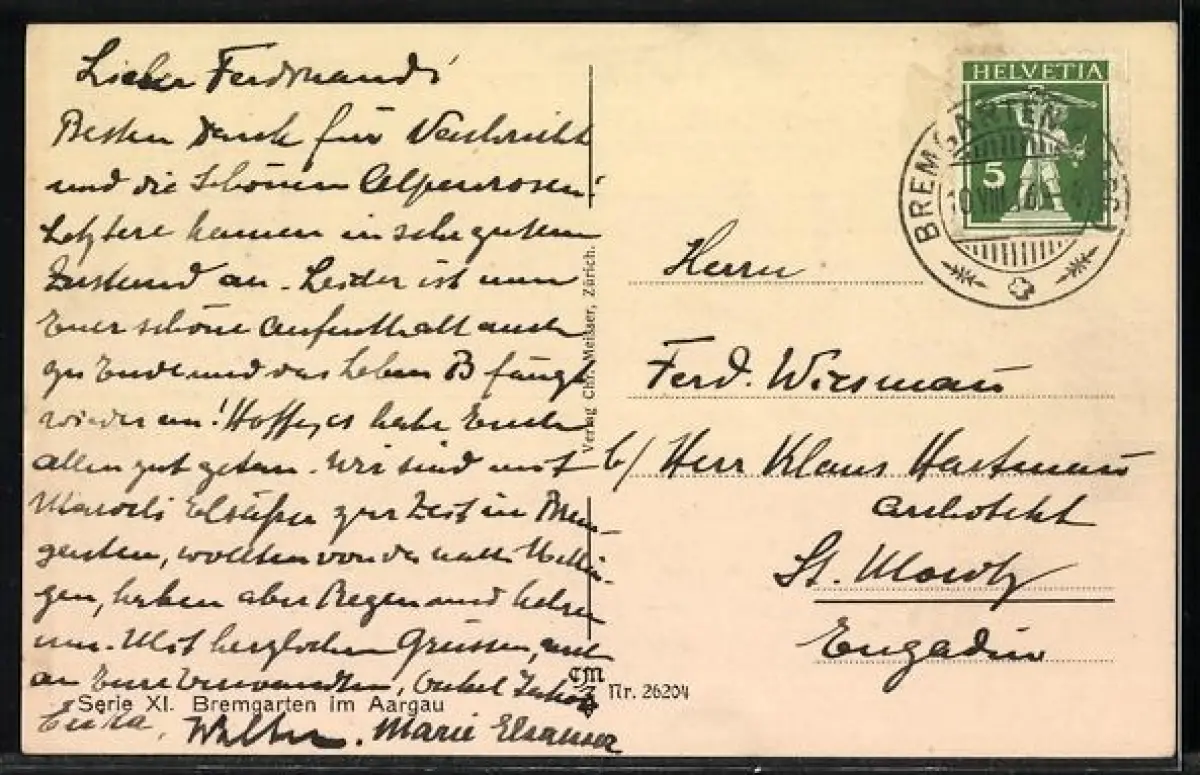 Lieber Ferdinand!
Besten Dank für Nachricht
und die schönen Alpenrosen!
Letztere kamen in sehr gutem
Zustand an. Leider ist nun
Euer schöne Aufenthalt auch
zu Ende und das Leben B fängt
wieder an! Hoffe, es habe Euch
allen gut getan. Wir sind mit
Elsässer zur Zeit in Brem-
garten, wollten von da nach Melli-
gen, haben aber Regen und kehren
um. Mit herzlichen Grüssen, auch
an Eure Verwandten, Onkel Jakob
Erika, Walter. Marie Elsässer
Serie XI. Bremgarten im Aargau
Verlag Chr. Meisser, Zürich.
CM
Nr. 26204
HELVETIA
5
BREMGARTEN
Herrn
Ferd. Wiesmann
b/ Herr Klaus Hartmann
Architekt
St. Moritz
Engadin